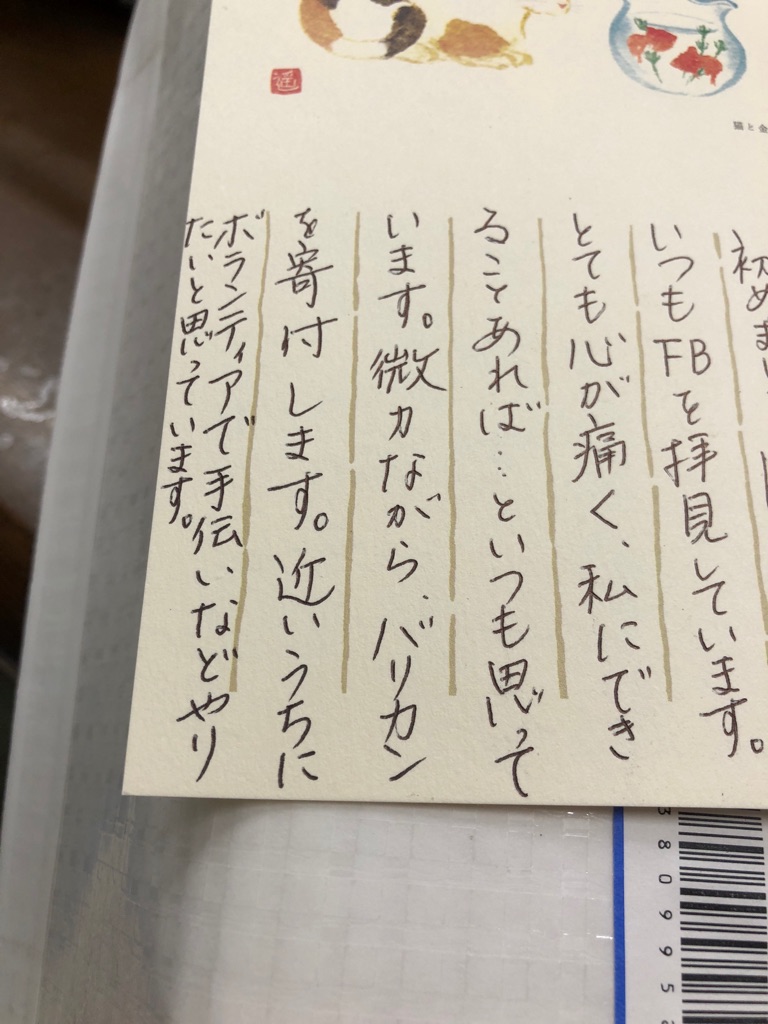 初めまし
いつもFBを拝見しています。
とても心が痛く、私にでき
ることあれば…といつも思って
います。微力ながら、バリカン
を寄付します。近いうちに
ボランティアで手伝いなどやり
たいと思っています。
猫と金
遥
3809952